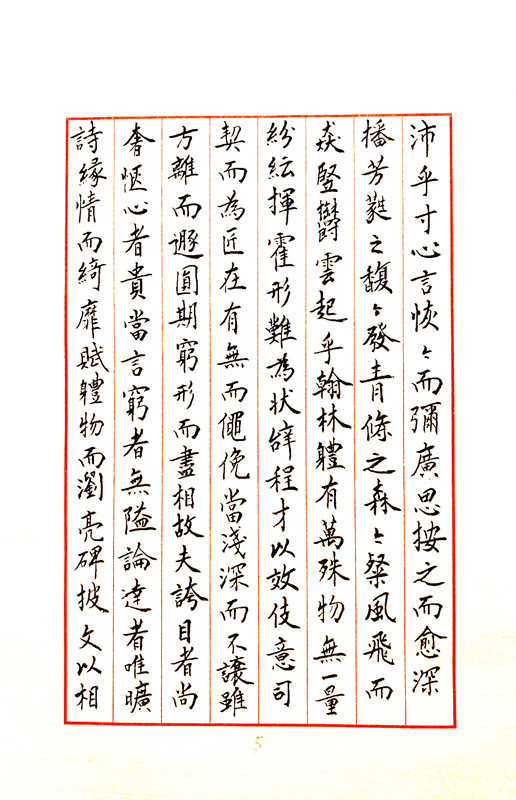 沛乎寸心言恢々而彌廣思按之而愈深
播芳蕤之馥々發青條之森々粲風飛而
猋豎鬱雲起乎翰林軆有萬殊物無一量
紛紜揮霍形難為狀辭程才以效伎意司
契而為匠在有無而僶俛當淺深而不讓雖
方離而遯圓期窮形而盡相故夫誇目者尚
奢愜心者貴當言窮者無隘論達者唯曠
詩緣情而綺靡賦軆物而瀏亮碑披文以相
5